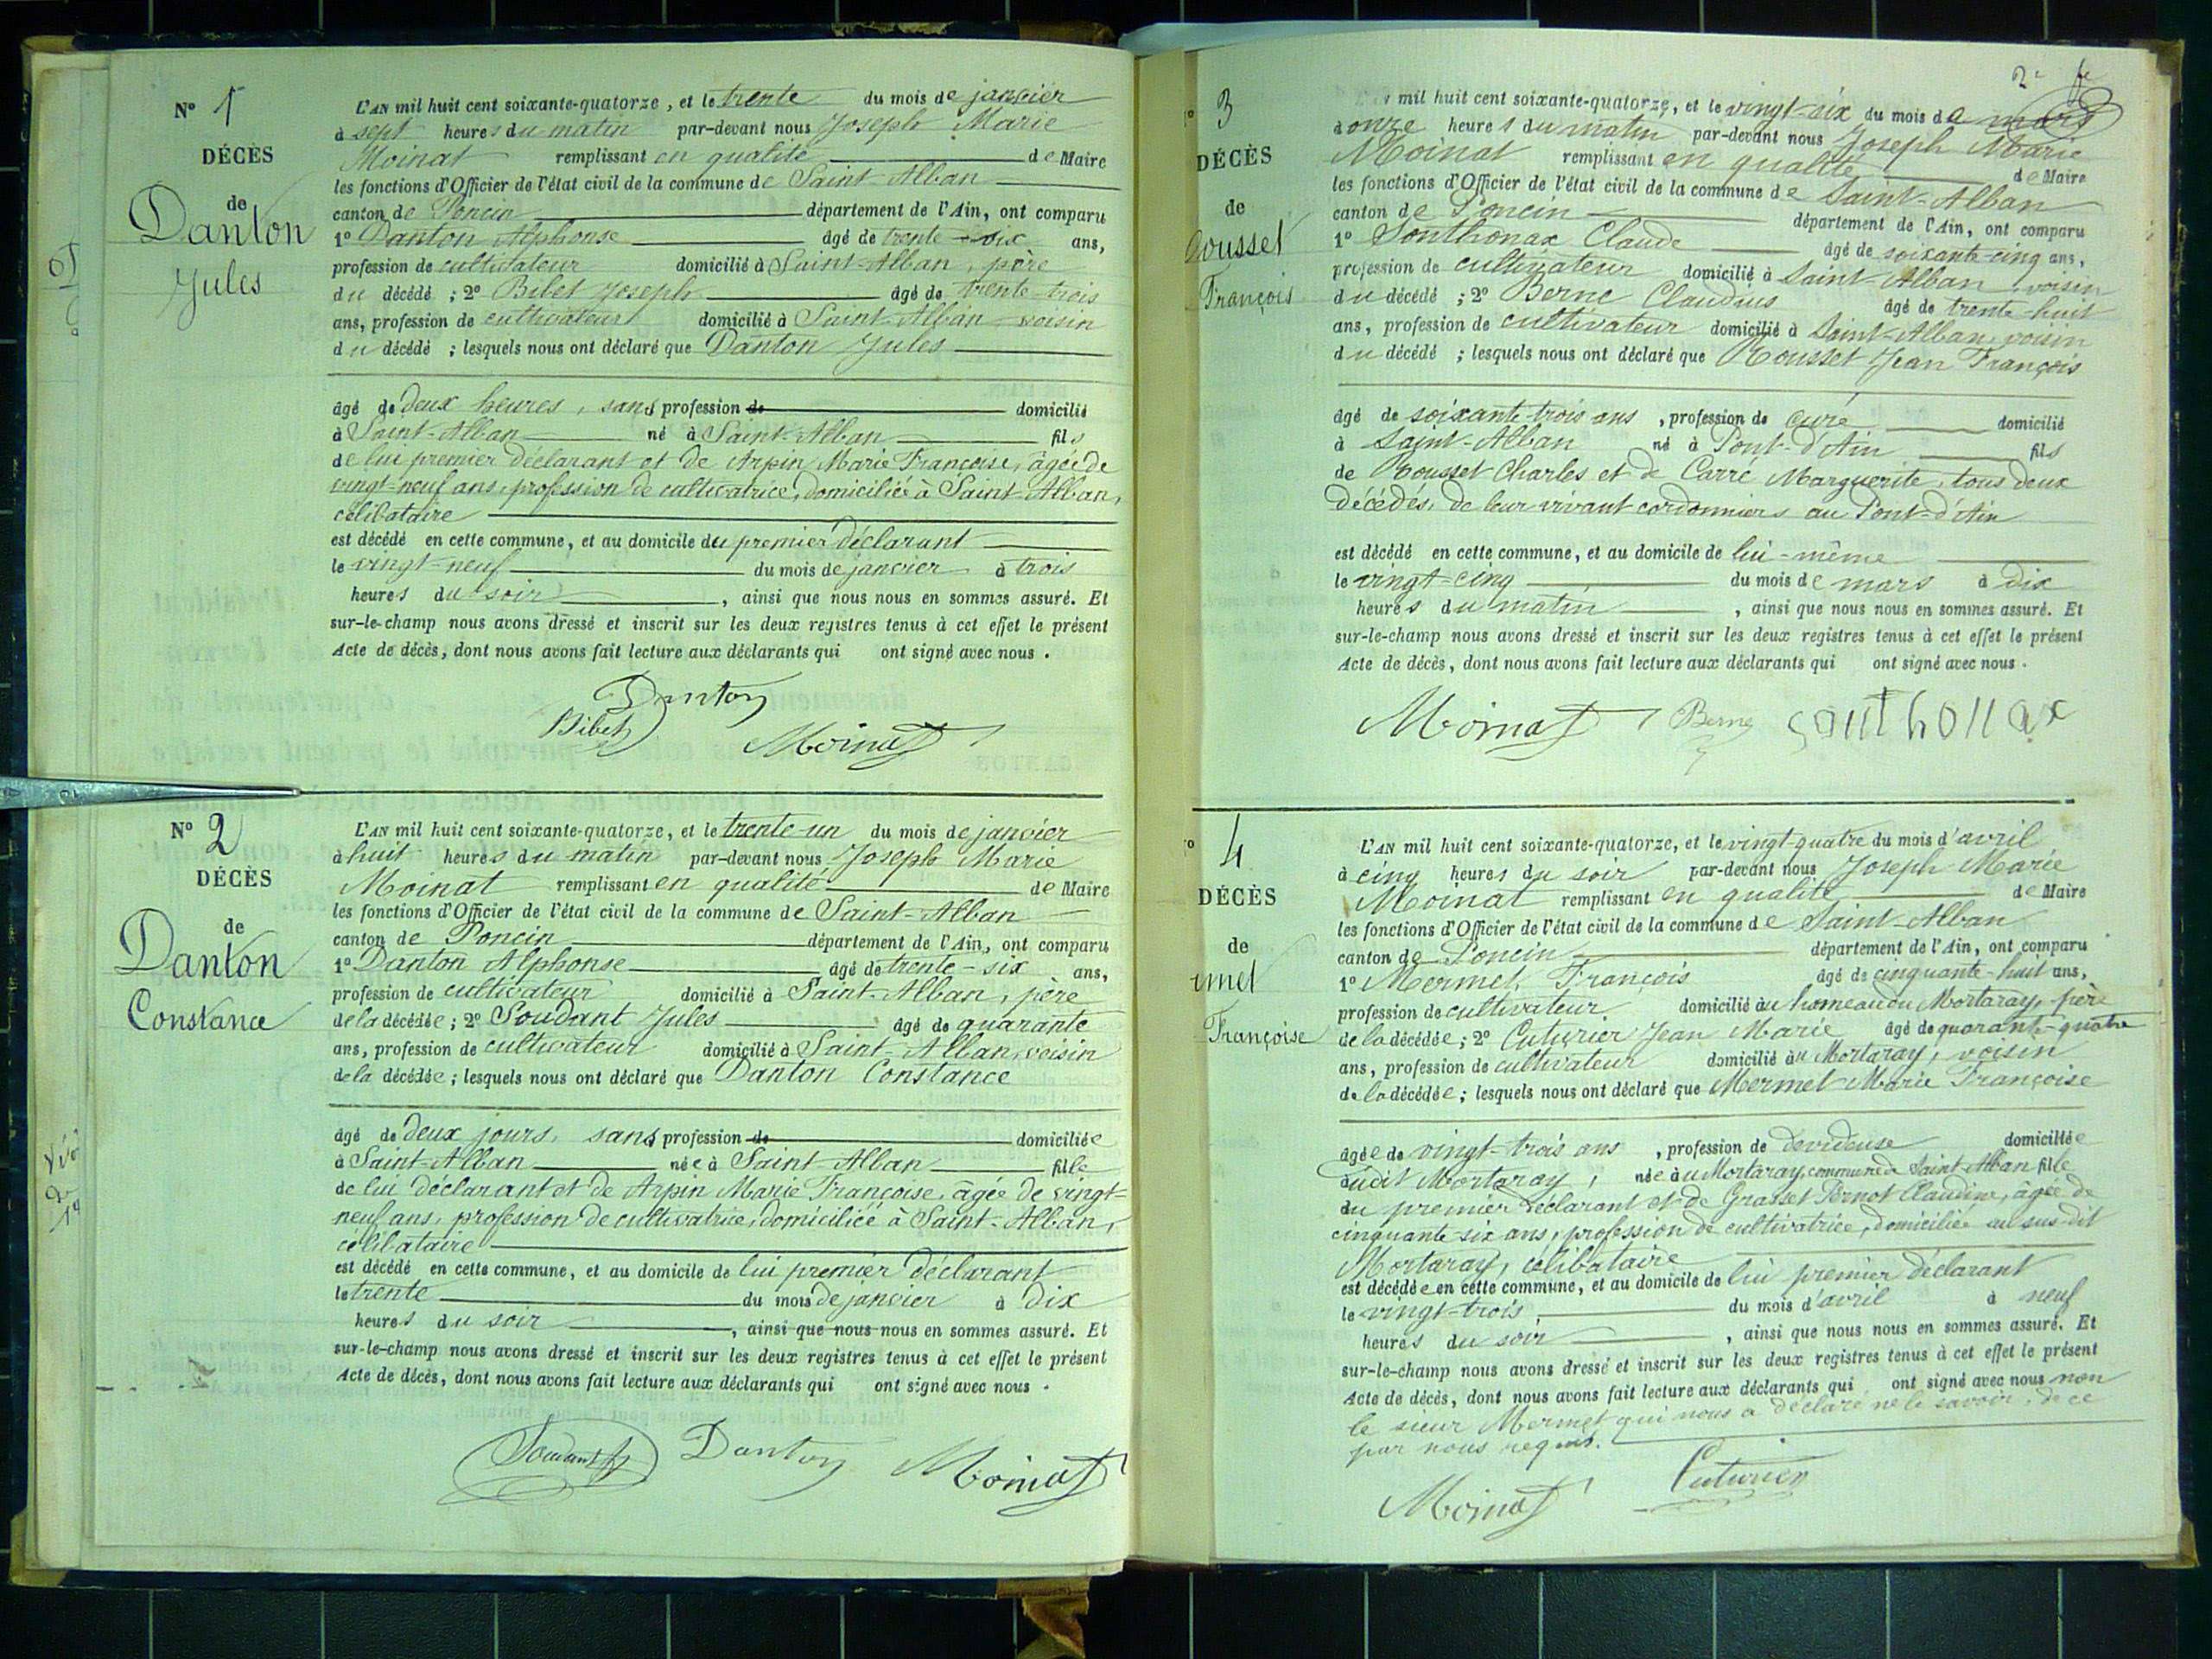 N° 1
DÉCÈS
de
Danton
Jules
L'AN mil huit cent soixante-quatorze, et le trente du mois de janvier
à sept heures du matin par-devant nous Joseph Marie
Moinat remplissant en qualité de Maire
les fonctions d'Officier de l'état civil de la commune de Saint-Alban
canton de Poncin département de l'Ain, ont comparu
1° Danton Alphonse âgé de trente-six ans,
profession de cultivateur domicilié à Saint-Alban, père
du décédé ; 2° Bibet Joseph âgé de trente-trois
ans, profession de cultivateur domicilié à Saint-Alban voisin
du décédé ; lesquels nous ont déclaré que Danton Jules
âgé de deux heures, sans profession de domicilié
à Saint-Alban né à Saint-Alban fils
de lui premier déclarant et de Arpin Marie Françoise, âgée de
vingt-neuf ans, profession de cultivatrice, domiciliée à Saint-Alban,
célibataire
est décédé en cette commune, et au domicile du premier déclarant
le vingt-neuf du mois de janvier à trois
heures du soir, ainsi que nous nous en sommes assuré. Et
sur-le-champ nous avons dressé et inscrit sur les deux registres tenus à cet effet le présent
Acte de décès, dont nous avons fait lecture aux déclarants qui ont signé avec nous.
Danton
Bibet Moinat
N° 2
DÉCÈS
de
Danton
Constance
L'AN mil huit cent soixante-quatorze, et le trente-un du mois de janvier
à huit heures du matin par-devant nous Joseph Marie
Moinat remplissant en qualité de Maire
les fonctions d'Officier de l'état civil de la commune de Saint-Alban
canton de Poncin département de l'Ain, ont comparu
1° Danton Alphonse âgé de trente-six ans,
profession de cultivateur domicilié à Saint-Alban, père
de la décédée ; 2° Soudant Jules âgé de quarante
ans, profession de cultivateur domicilié à Saint-Alban, voisin
de la décédée ; lesquels nous ont déclaré que Danton Constance
âgé de deux jours, sans profession de domiciliée
à Saint-Alban née à Saint-Alban fille
de lui déclarant et de Arpin Marie Françoise, âgée de vingt-
neuf ans, profession de cultivatrice, domiciliée à Saint-Alban,
célibataire
est décédé en cette commune, et au domicile de lui premier déclarant
le trente du mois de janvier à dix
heures du soir, ainsi que nous nous en sommes assuré. Et
sur-le-champ nous avons dressé et inscrit sur les deux registres tenus à cet effet le présent
Acte de décès, dont nous avons fait lecture aux déclarants qui ont signé avec nous.
Soudant Danton Moinat
3
DÉCÈS
de
ousset
François
mil huit cent soixante-quatorze, et le vingt-six du mois de mars
à onze heures du matin par-devant nous Joseph Marie
Moinat remplissant en qualité de Maire
les fonctions d'Officier de l'état civil de la commune de Saint-Alban
canton de Poncin département de l'Ain, ont comparu
1° Sonthonax Claude âgé de soixante-cinq ans,
profession de cultivateur domicilié à Saint-Alban, voisin
du décédé ; 2° Berne Claudius âgé de trente-huit
ans, profession de cultivateur domicilié à Saint-Alban, voisin
du décédé ; lesquels nous ont déclaré que Rousset Jean François
âgé de soixante-trois ans, profession de curé domicilié
à Saint-Alban né à Pont-d'Ain fils
de Rousset Charles et de Carré Marguerite, tous deux
décédés, de leur vivant cordonniers au Pont-d'Ain
est décédé en cette commune, et au domicile de lui-même
le vingt-cinq du mois de mars à dix
heures du matin, ainsi que nous nous en sommes assuré. Et
sur-le-champ nous avons dressé et inscrit sur les deux registres tenus à cet effet le présent
Acte de décès, dont nous avons fait lecture aux déclarants qui ont signé avec nous.
Moinat Berne Sonthonax
4
DÉCÈS
de
rmet
Françoise
L'AN mil huit cent soixante-quatorze, et le vingt-quatre du mois d'avril
à cinq heures du soir par-devant nous Joseph Marie
Moinat remplissant en qualité de Maire
les fonctions d'Officier de l'état civil de la commune de Saint-Alban
canton de Poncin département de l'Ain, ont comparu
1° Mermet François âgé de cinquante-huit ans,
profession de cultivateur domicilié au hameau du Mortaray, père
de la décédée ; 2° Cuturier Jean Marie âgé de quarante-quatre
ans, profession de cultivateur domicilié au Mortaray, voisin
de la décédée ; lesquels nous ont déclaré que Mermet Marie Françoise
âgée de vingt-trois ans, profession de devideuse domiciliée
audit Mortaray, née au Mortaray, commune de Saint-Alban fille
du premier déclarant et de Grasset Pernot Claudine, âgée de
cinquante-six ans, profession de cultivatrice, domiciliée au sus-dit
Mortaray, célibataire
est décédée en cette commune, et au domicile de lui premier déclarant
le vingt-trois du mois d'avril à neuf
heures du soir, ainsi que nous nous en sommes assuré. Et
sur-le-champ nous avons dressé et inscrit sur les deux registres tenus à cet effet le présent
Acte de décès, dont nous avons fait lecture aux déclarants qui ont signé avec nous non
le sieur Mermet qui nous a déclaré ne le savoir, de ce
par nous requis.
Moinat Cuturier